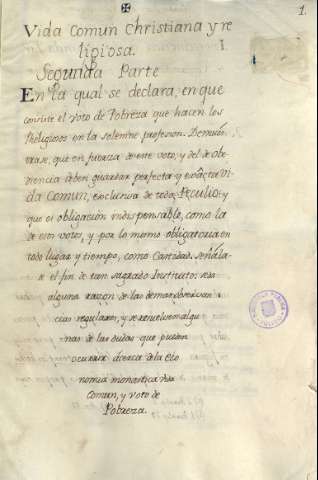 1.
Vida Comun Christiana y re
ligiosa. I.
Segunda Parte
En la qual se declara, en que
consiste el voto de Pobreza que hacen los
Religiosos en la solemne profesion. Demues
trase, que en fuerza de este voto, y del de obe
diencia deben guardar perfecta y exacta vi
da Comun, exclusiva de todo Peculio: y
que es obligacion indispensable, como la
de estos votos, y por lo mismo obligatoria en
todo lugar y tiempo, como cantidad. señala
se el fin de tan sagrado Instituto: se da
alguna razon de las demas observan
cias regulares, y se resuelven algu
nas de las dudas que pueden
ocurrir acerca de la Eco
nomia monastica vida
comun, y voto de
Pobreza.